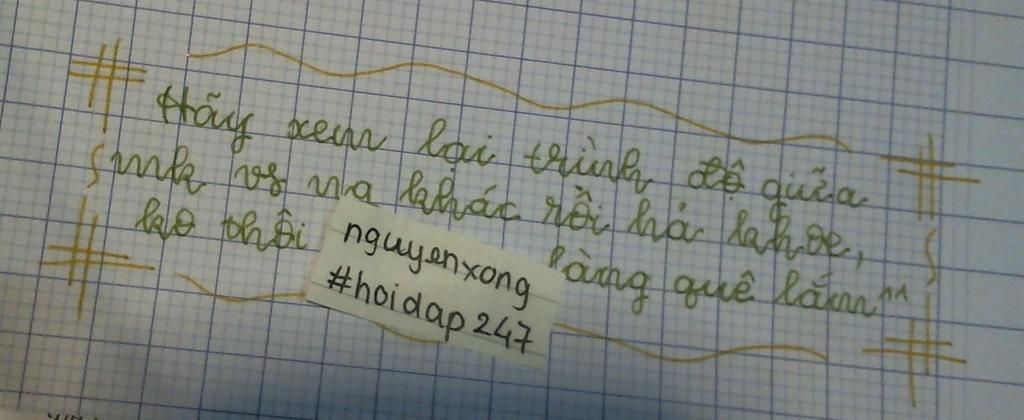 Hãy xem lại trình độ giữa
mk vs ng khác rồi hả khoe,
ko thôi làng quê lắm^^
nguyenxong
#hoidap247